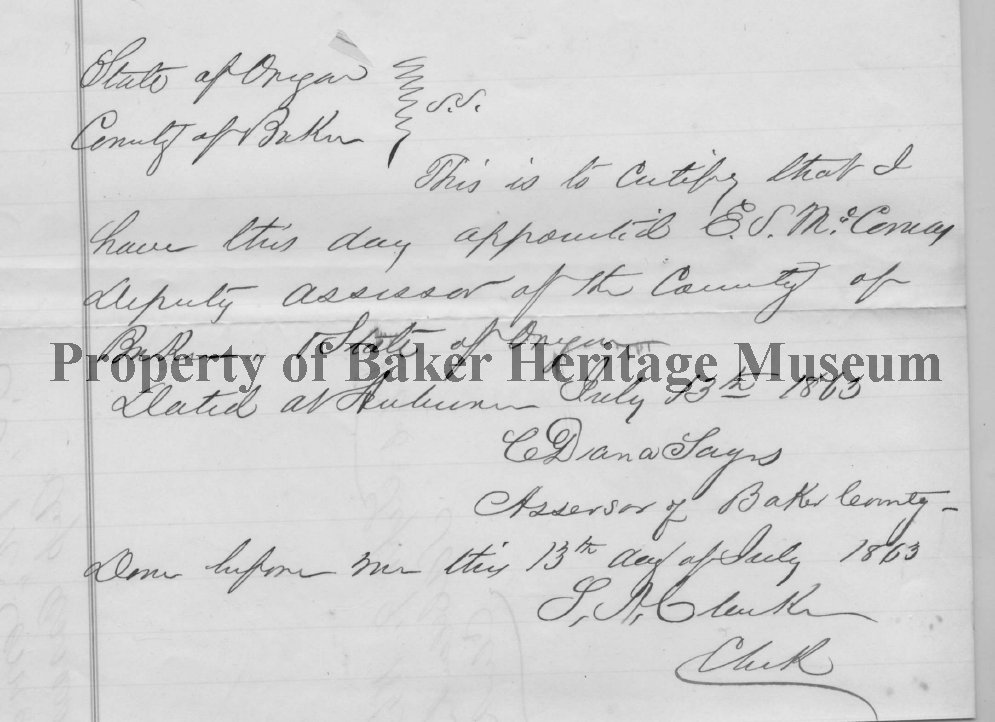 State of Oregon
County of Baker } S.S.
This is to certify that I
have this day appointed E. S. McComas
Deputy Assessor of the County of
Baker State of Oregon
Property of Baker Heritage Museum
Dated at Auburn July 13th 1863
C Dana Sayrs
Assessor of Baker County
Done before me this 13th day of July 1863
S. A. Clarke
Clerk